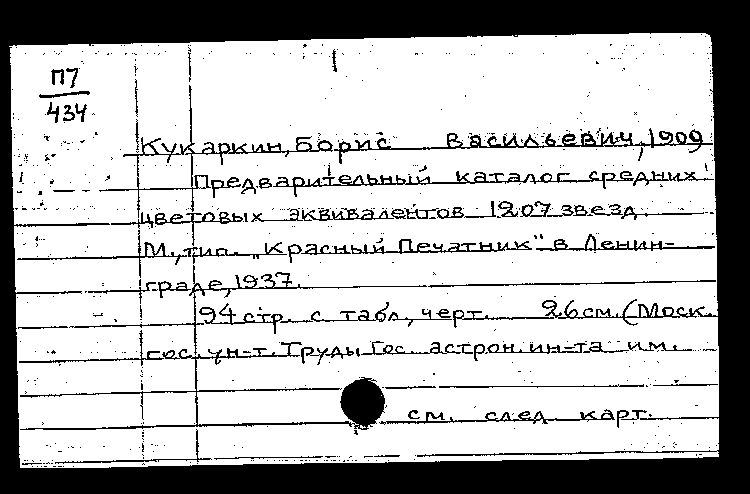 П7
434
Кукаркин, Борис Васильевич, 1909
Предварительный каталог средних
цветовых эквивалентов 1207 звезд.
М., тип. „Красный Печатник" в Ленин-
граде, 1937.
94 стр. с табл., черт. 26 см. (Моск.
гос. ун-т. Труды Гос. астрон. ин-та им.
см. след. карт.